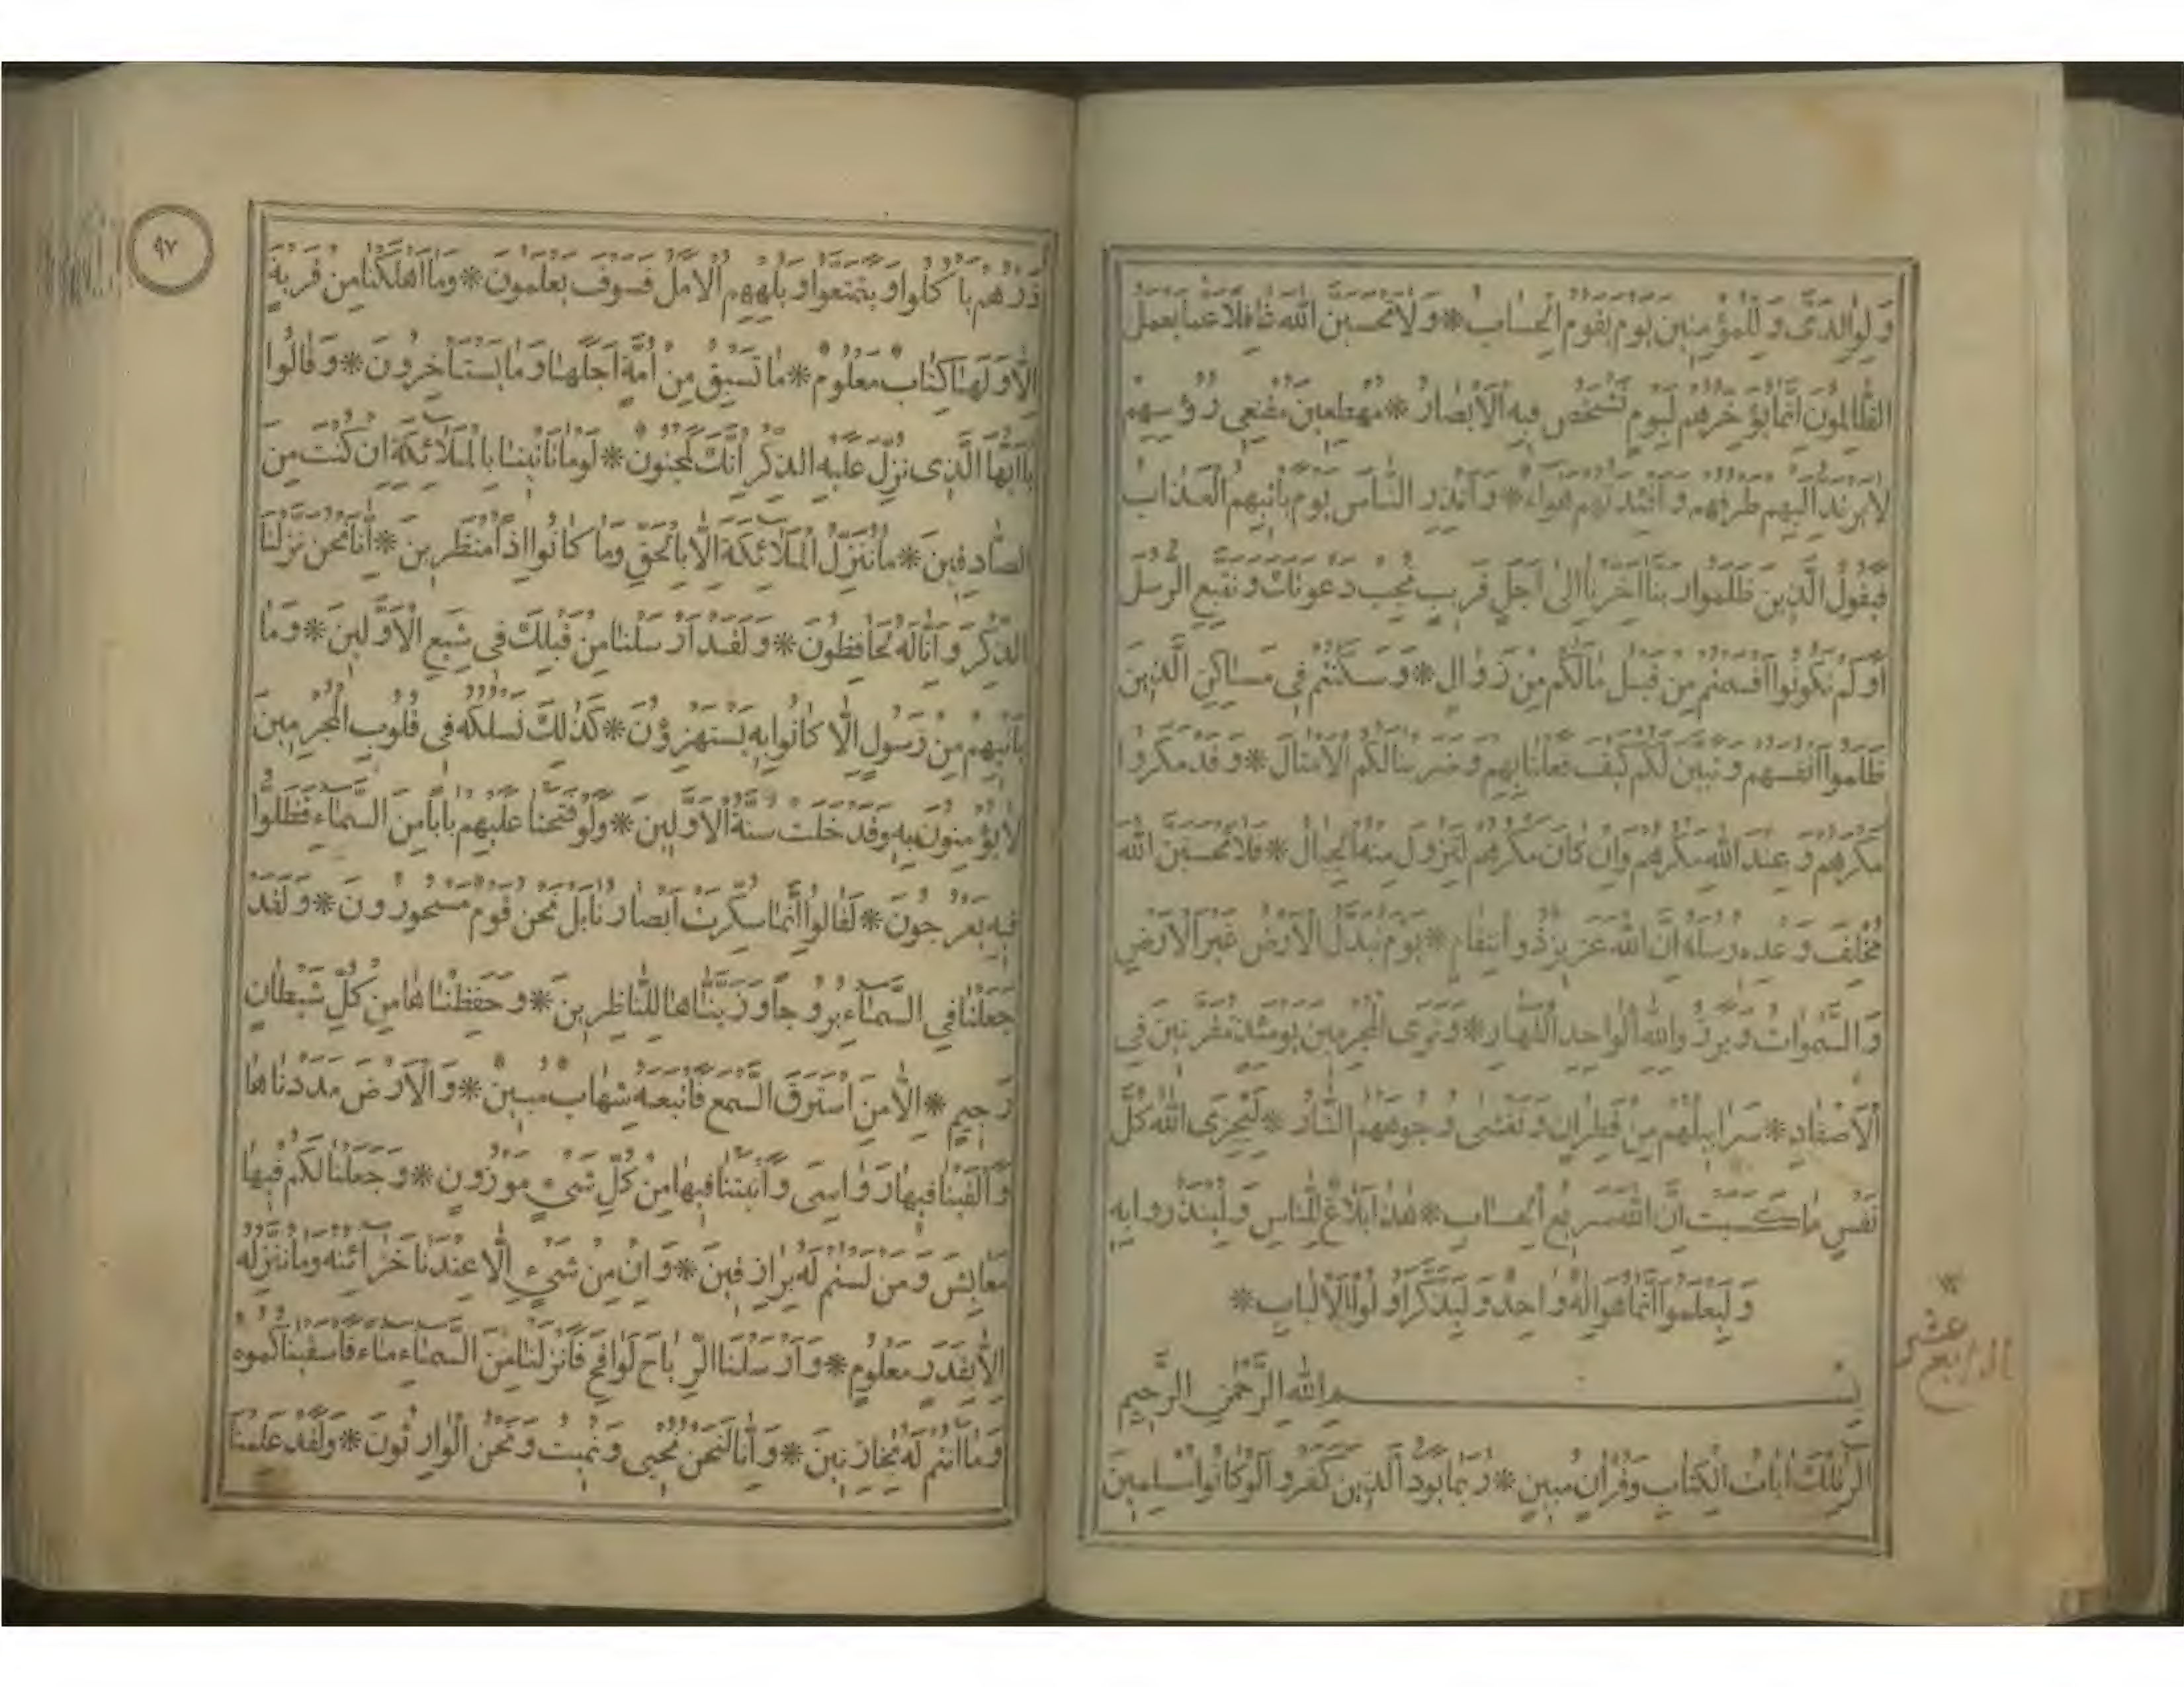 وَلِوَالِدَىَّ وَلِلْمُؤْمِنِينَ يَوْمَ يَقُومُ الْحِسَابُ * وَلَا تَحْسَبَنَّ اللّٰهَ غَافِلًا عَمَّا يَعْمَلُ
الظَّالِمُونَ اِنَّمَا يُؤَخِّرُهُمْ لِيَوْمٍ تَشْخَصُ فِيهِ الْاَبْصَارُ * مُهْطِعِينَ مُقْنِعِى رُؤُسِهِمْ
لَا يَرْتَدُّ اِلَيْهِمْ طَرْفُهُمْ وَاَفْئِدَتُهُمْ هَوَاءٌ * وَاَنْذِرِ النَّاسَ يَوْمَ يَأْتِيهِمُ الْعَذَابُ
فَيَقُولُ الَّذِينَ ظَلَمُوا رَبَّنَا اَخِّرْنَا اِلٰى اَجَلٍ قَرِيبٍ نُجِبْ دَعْوَتَكَ وَنَتَّبِعِ الرُّسُلَ
اَوَلَمْ تَكُونُوا اَقْسَمْتُمْ مِنْ قَبْلُ مَا لَكُمْ مِنْ زَوَالٍ * وَسَكَنْتُمْ فِى مَسَاكِنِ الَّذِينَ
ظَلَمُوا اَنْفُسَهُمْ وَتَبَيَّنَ لَكُمْ كَيْفَ فَعَلْنَا بِهِمْ وَضَرَبْنَا لَكُمُ الْاَمْثَالَ * وَقَدْ مَكَرُوا
مَكْرَهُمْ وَعِنْدَ اللّٰهِ مَكْرُهُمْ وَاِنْ كَانَ مَكْرُهُمْ لِتَزُولَ مِنْهُ الْجِبَالُ * فَلَا تَحْسَبَنَّ اللّٰهَ
مُخْلِفَ وَعْدِهِ رُسُلَهُ اِنَّ اللّٰهَ عَزِيزٌ ذُو انْتِقَامٍ * يَوْمَ تُبَدَّلُ الْاَرْضُ غَيْرَ الْاَرْضِ
وَالسَّمٰوَاتُ وَبَرَزُوا لِلّٰهِ الْوَاحِدِ الْقَهَّارِ * وَتَرَى الْمُجْرِمِينَ يَوْمَئِذٍ مُقَرَّنِينَ فِى
الْاَصْفَادِ * سَرَابِيلُهُمْ مِنْ قَطِرَانٍ وَتَغْشٰى وُجُوهَهُمُ النَّارُ * لِيَجْزِىَ اللّٰهُ كُلَّ
نَفْسٍ مَا كَسَبَتْ اِنَّ اللّٰهَ سَرِيعُ الْحِسَابِ * هٰذَا بَلَاغٌ لِلنَّاسِ وَلِيُنْذَرُوا بِهِ
وَلِيَعْلَمُوا اَنَّمَا هُوَ اِلٰهٌ وَاحِدٌ وَلِيَذَّكَّرَ اُولُوا الْاَلْبَابِ *
الرابع عشر
بِسْمِ اللّٰهِ الرَّحْمٰنِ الرَّحِيمِ
الٓرٰ تِلْكَ اٰيَاتُ الْكِتَابِ وَقُرْاٰنٍ مُبِينٍ * رُبَمَا يَوَدُّ الَّذِينَ كَفَرُوا لَوْ كَانُوا مُسْلِمِينَ
٩٧
ذَرْهُمْ يَأْكُلُوا وَيَتَمَتَّعُوا وَيُلْهِهِمُ الْاَمَلُ فَسَوْفَ يَعْلَمُونَ * وَمَا اَهْلَكْنَا مِنْ قَرْيَةٍ
اِلَّا وَلَهَا كِتَابٌ مَعْلُومٌ * مَا تَسْبِقُ مِنْ اُمَّةٍ اَجَلَهَا وَمَا يَسْتَأْخِرُونَ * وَقَالُوا
يَا اَيُّهَا الَّذِى نُزِّلَ عَلَيْهِ الذِّكْرُ اِنَّكَ لَمَجْنُونٌ * لَوْمَا تَأْتِينَا بِالْمَلَائِكَةِ اِنْ كُنْتَ مِنَ
الصَّادِقِينَ * مَا نُنَزِّلُ الْمَلَائِكَةَ اِلَّا بِالْحَقِّ وَمَا كَانُوا اِذًا مُنْظَرِينَ * اِنَّا نَحْنُ نَزَّلْنَا
الذِّكْرَ وَاِنَّا لَهُ لَحَافِظُونَ * وَلَقَدْ اَرْسَلْنَا مِنْ قَبْلِكَ فِى شِيَعِ الْاَوَّلِينَ * وَمَا
يَأْتِيهِمْ مِنْ رَسُولٍ اِلَّا كَانُوا بِهِ يَسْتَهْزِؤُنَ * كَذٰلِكَ نَسْلُكُهُ فِى قُلُوبِ الْمُجْرِمِينَ
لَا يُؤْمِنُونَ بِهِ وَقَدْ خَلَتْ سُنَّةُ الْاَوَّلِينَ * وَلَوْ فَتَحْنَا عَلَيْهِمْ بَابًا مِنَ السَّمَاءِ فَظَلُّوا
فِيهِ يَعْرُجُونَ * لَقَالُوا اِنَّمَا سُكِّرَتْ اَبْصَارُنَا بَلْ نَحْنُ قَوْمٌ مَسْحُورُونَ * وَلَقَدْ
جَعَلْنَا فِى السَّمَاءِ بُرُوجًا وَزَيَّنَّاهَا لِلنَّاظِرِينَ * وَحَفِظْنَاهَا مِنْ كُلِّ شَيْطَانٍ
رَجِيمٍ * اِلَّا مَنِ اسْتَرَقَ السَّمْعَ فَاَتْبَعَهُ شِهَابٌ مُبِينٌ * وَالْاَرْضَ مَدَدْنَاهَا
وَاَلْقَيْنَا فِيهَا رَوَاسِىَ وَاَنْبَتْنَا فِيهَا مِنْ كُلِّ شَىْءٍ مَوْزُونٍ * وَجَعَلْنَا لَكُمْ فِيهَا
مَعَايِشَ وَمَنْ لَسْتُمْ لَهُ بِرَازِقِينَ * وَاِنْ مِنْ شَىْءٍ اِلَّا عِنْدَنَا خَزَائِنُهُ وَمَا نُنَزِّلُهُ
اِلَّا بِقَدَرٍ مَعْلُومٍ * وَاَرْسَلْنَا الرِّيَاحَ لَوَاقِحَ فَاَنْزَلْنَا مِنَ السَّمَاءِ مَاءً فَاَسْقَيْنَاكُمُوهُ
وَمَا اَنْتُمْ لَهُ بِخَازِنِينَ * وَاِنَّا لَنَحْنُ نُحْيِى وَنُمِيتُ وَنَحْنُ الْوَارِثُونَ * وَلَقَدْ عَلِمْنَا